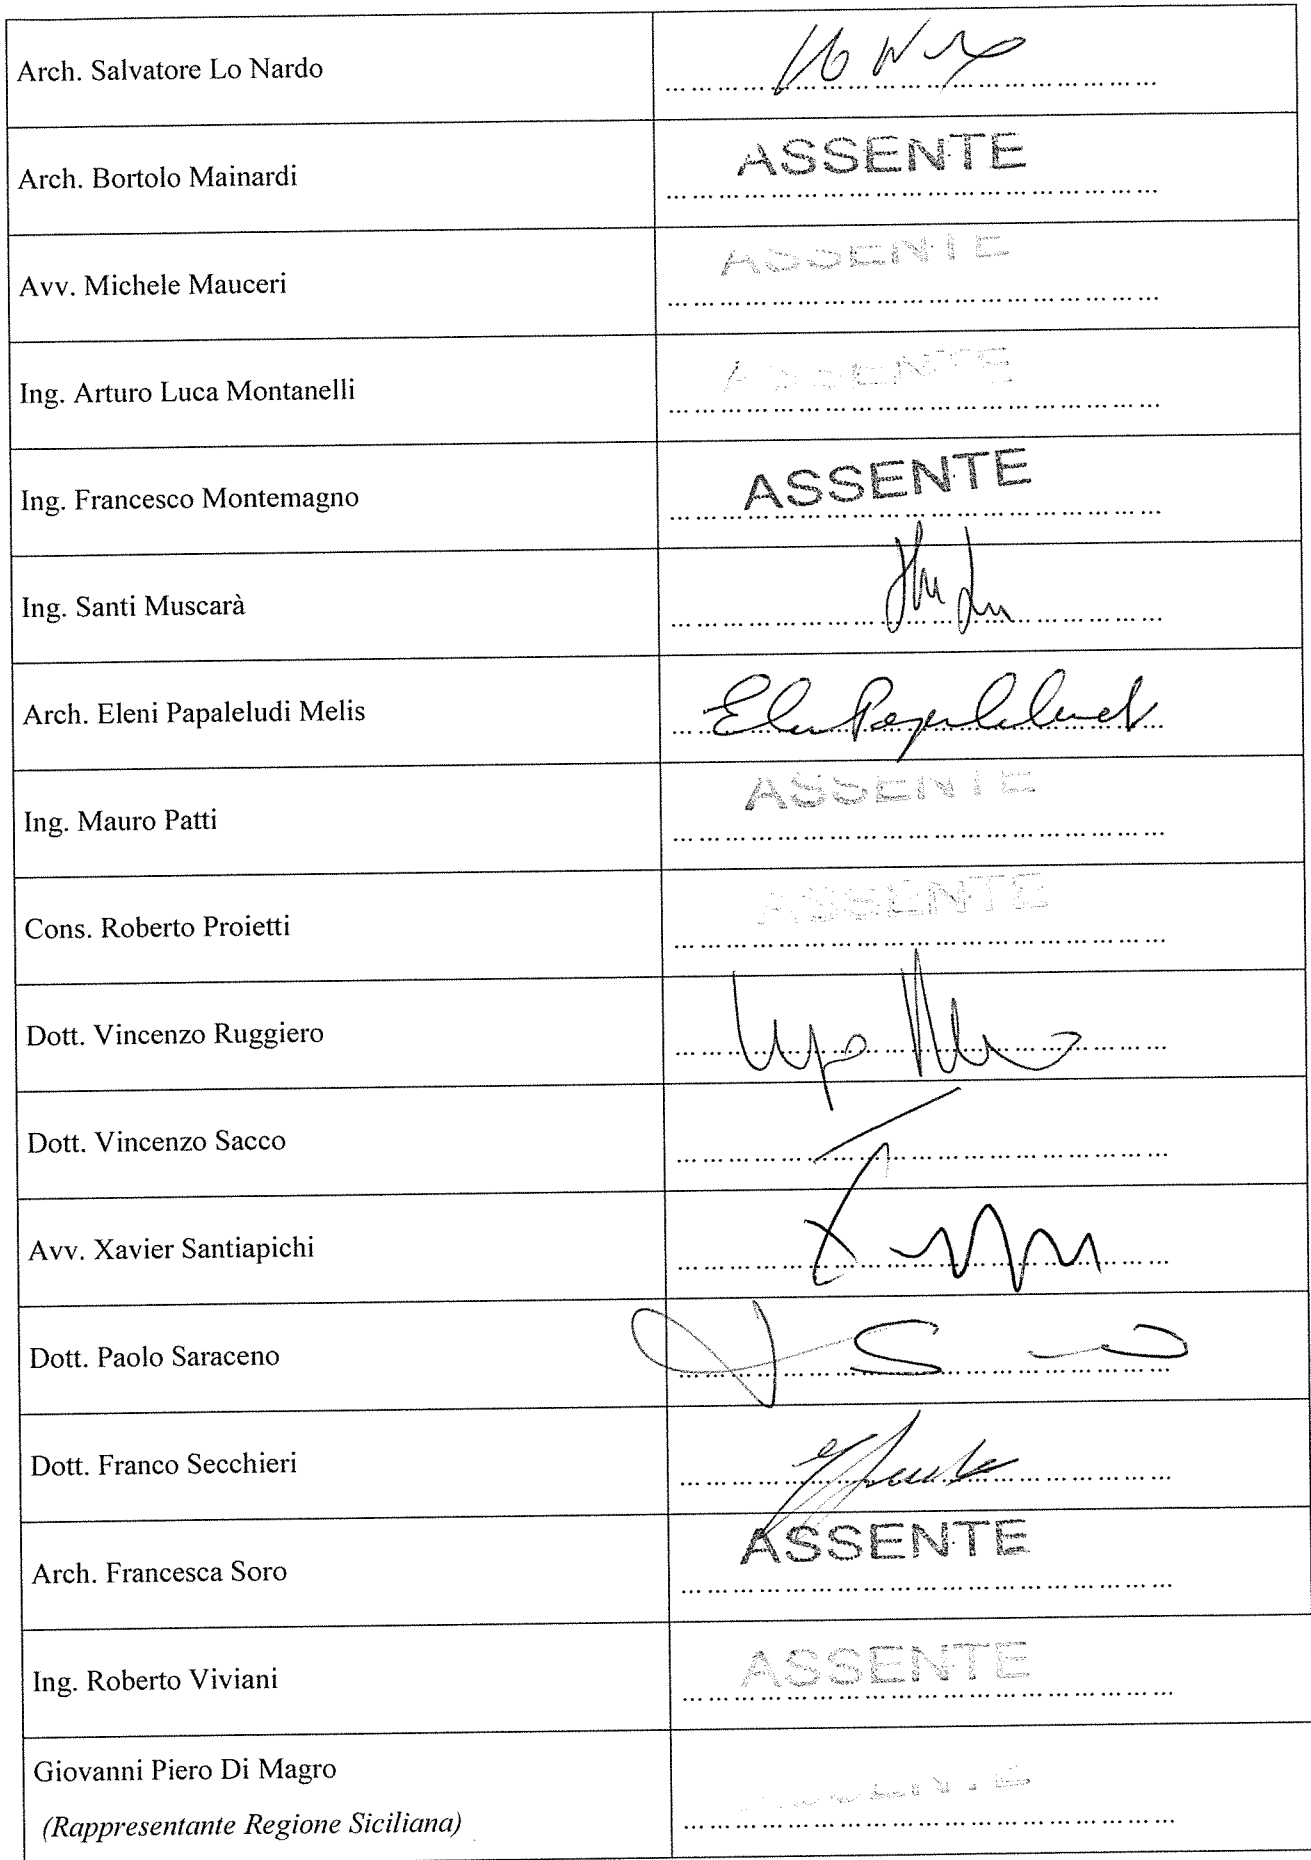 Arch. Salvatore Lo Nardo
Arch. Bortolo Mainardi
ASSENTE
Avv. Michele Mauceri
ASSENTE
Ing. Arturo Luca Montanelli
ASSENTE
Ing. Francesco Montemagno
ASSENTE
Ing. Santi Muscarà
Arch. Eleni Papaleludi Melis
Ing. Mauro Patti
ASSENTE
Cons. Roberto Proietti
ASSENTE
Dott. Vincenzo Ruggiero
Dott. Vincenzo Sacco
Avv. Xavier Santiapichi
Dott. Paolo Saraceno
Dott. Franco Secchieri
Arch. Francesca Soro
ASSENTE
Ing. Roberto Viviani
ASSENTE
Giovanni Piero Di Magro
(Rappresentante Regione Siciliana)
ASSENTE